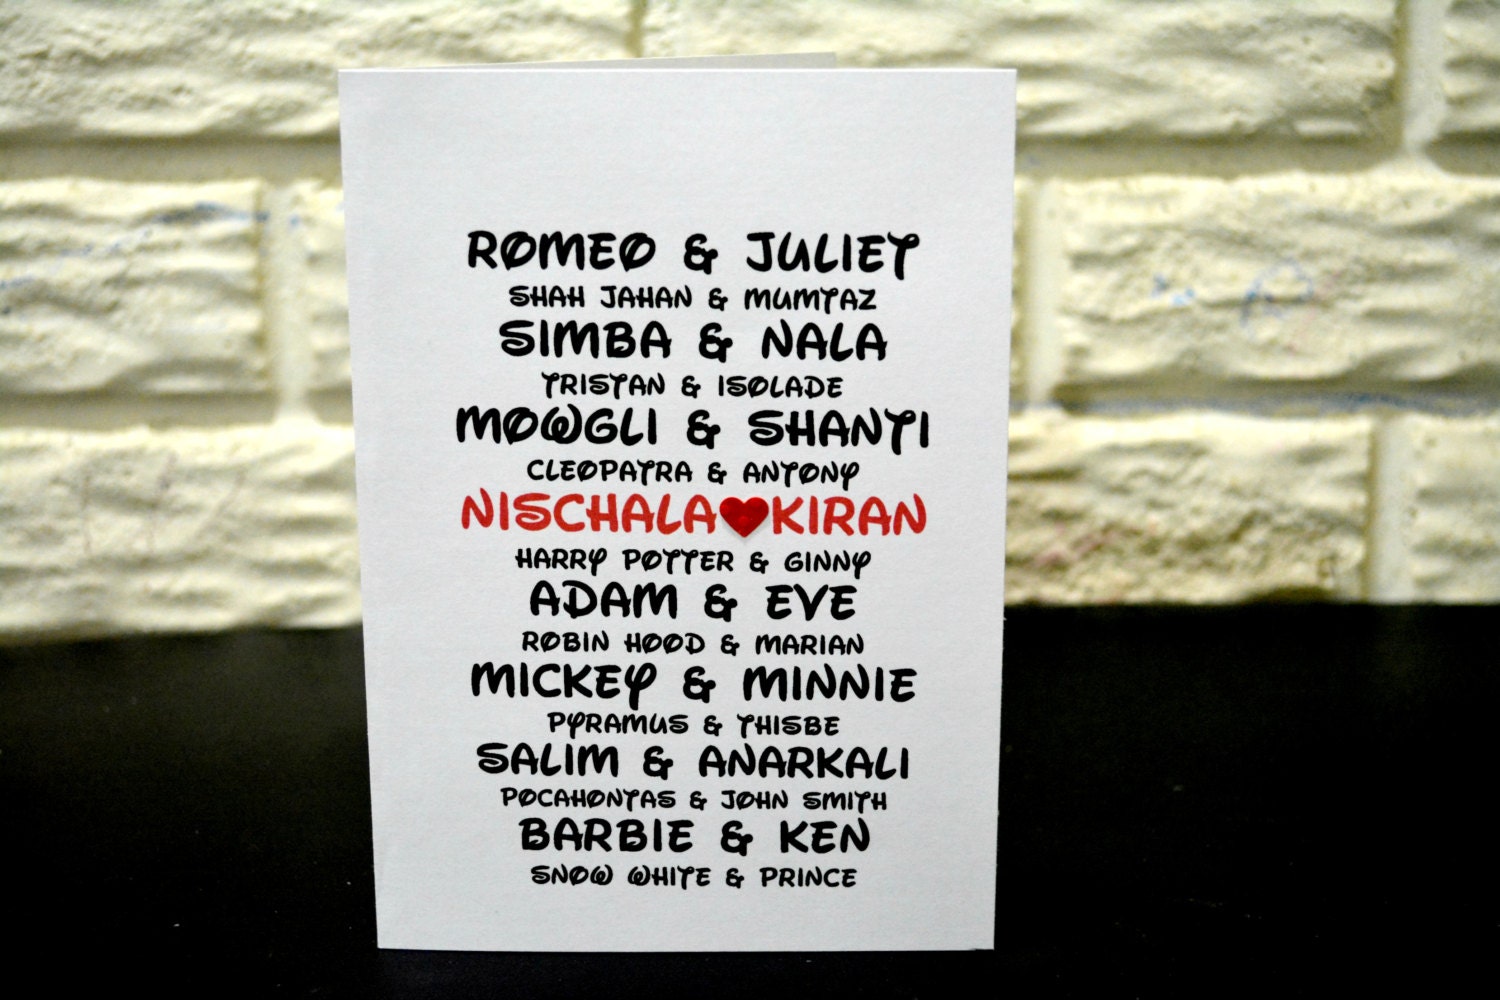 ROMEO & JULIET
SHAH JAHAN & MUMTAZ
SIMBA & NALA
TRISTAN & ISOLADE
MOWGLI & SHANTI
CLEOPATRA & ANTONY
NISCHALA❤KIRAN
HARRY POTTER & GINNY
ADAM & EVE
ROBIN HOOD & MARIAN
MICKEY & MINNIE
PYRAMUS & THISBE
SALIM & ANARKALI
POCAHONTAS & JOHN SMITH
BARBIE & KEN
SNOW WHITE & PRINCE